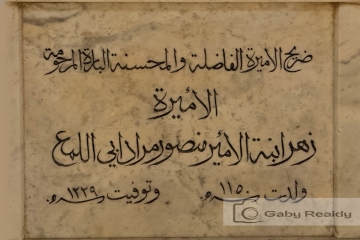 ضريح الاميرة الفاضلة والمحسنة البارة المرحومة
الأميرة
زهر ابنة الامير منصور مراد ابي اللمع
ولدت سنة ١١٥٠ه‍ وتوفيت سنة ١٢٢٩ه‍
Gaby Reaidy